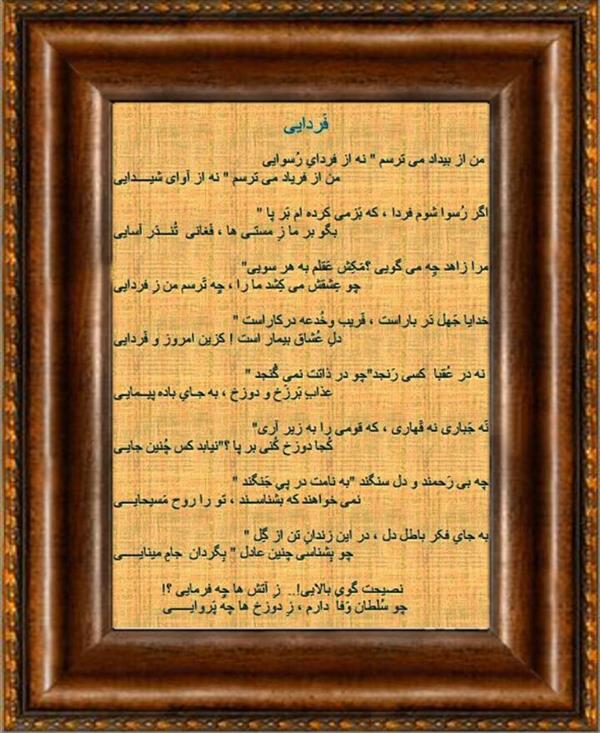 فَردایی
من از بیداد می ترسم " نه از فردایِ رُسوایی
من از فریاد می ترسم " نه از آوای شیـــدایی
اگر رُسوا شوم فردا ، که بَزمی کرده ام بَر پا "
بگو بر ما زِ مستی ها ، فَغانی تُنــدَر آسایی
مرا زاهد چِه می گویی ؟مَکِش عَقلم به هر سویی"
چو عِشقش می کِشد ما را ، چِه تَرسم من زِ فردایی
خدایا جَهل دَر باراست ، فَریب وخُدعه درکاراست "
دلِ عُشاق بیمار است ! کزین امروز و فَردایی
نه در عُقبا کسی رَنجد"چو در ذاتت نمی گُنجد "
عذابِ بَرزَخ و دوزخ ، به جایِ باده پیـمایی
نَه جَباری نه قَهاری ، که قومی را به زیر آری"
کُجا دوزخ کُنی بر پا ؟"نیابد کس چُنین جایی
چه بی رَحمند و دل سنگند "به نامت در پیِ جَنگند "
نمی خواهند که بشناسـند ، تو را روحِ مَسیحایـــی
به جایِ فکر باطل دل ، در این زندانِ تن از گِل "
چو بِشناسی چنین عادل " بِگردان جامِ مینایــــی
نصیحت گویِ بالایی!.. زِ آتش ها چِه فرمایی ؟!
چو سُلطانِ وَفا دارم ، زِ دوزخ ها چِه پَروایــــی